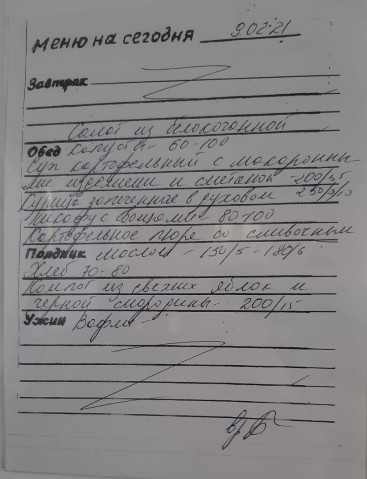 Меню на сегодня 9.02.21
Завтрак
Салат из белокочанной
Обед капусты - 60-100
Суп картофельный с макаронны
ми изделиями и сметаной - 200/
запеченные в духовом
с овощами - 80-100
Картофельное пюре со сливочным
Полдник маслом - 150/5 - 180/6
Хлеб 70-80
Компот из свежих яблок и
черной смородины - 200/15
Ужин Вафли